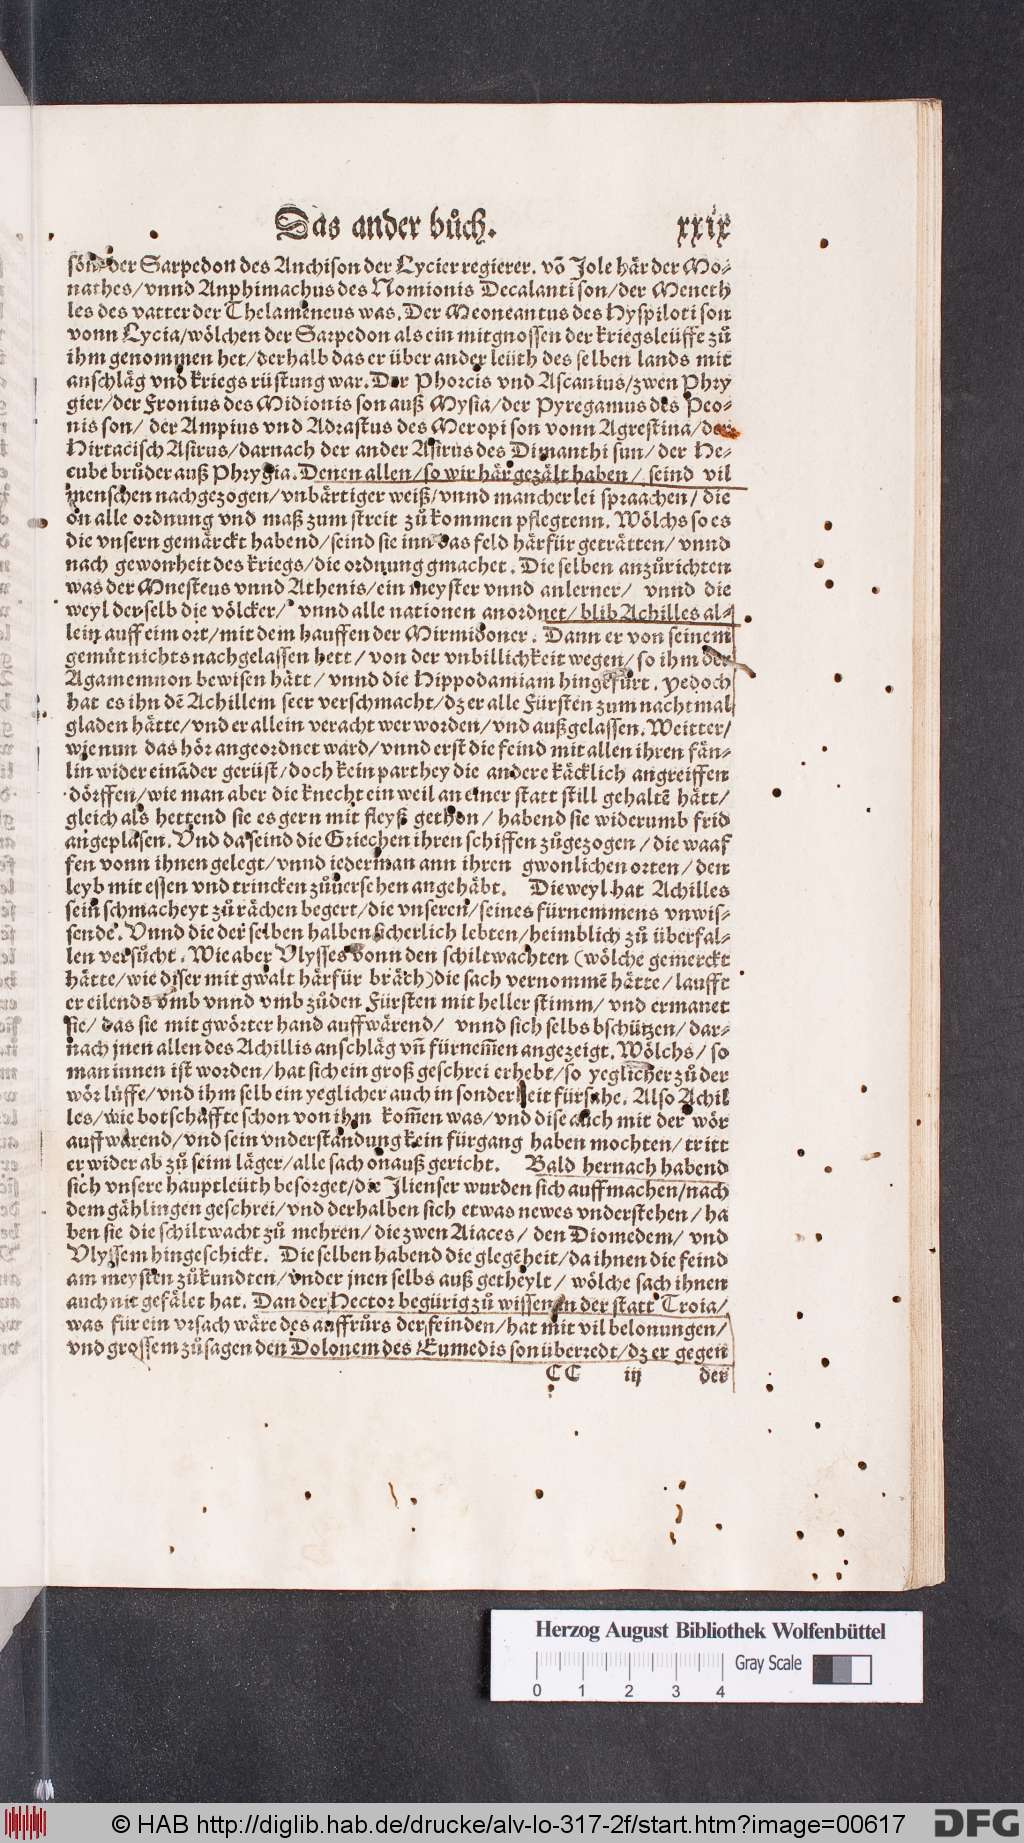 Das ander bůch. xxix
sön der Sarpedon des Anchison der Lycier regierer. võ Jole här der Mo-
nathes/vnnd Anphimachus des Nomionis Decalanti son/der Meneth
les des vatter der Thelameneus was. Der Meoneantus des Hyspiloti son
vonn Lycia/wölchen der Sarpedon als ein mitgnossen der kriegsleüffe zů
ihm genommen het/derhalb das er über ander leüth des selben lands mit
anschläg vnd kriegs rüstung war. Der Phorcis vnd Ascanius/zwen Phry
gier/der Fronius des Midionis son auß Mysia/der Pyregamus des Peo-
nis son/ der Ampius vnd Adrastus des Meropi son vonn Agrestina/der
Hirtacisch Asirus/darnach der ander Asirus des Dimanthi sun/der He-
cube brůder auß Phrygia. Denen allen/so wir här gezält haben/ seind vil
menschen nachgezogen/vnbärtiger weiß/vnnd mancherlei spraachen/die
on alle ordnung vnd maß zum streit zů kommen pflegtenn. Wölchs so es
die vnsern gemärckt habend/seind sie inn das feld härfür geträtten/vnnd
nach gewonheit des kriegs/die ordnung gmachet. Die selben anzůrichten
was der Mnesteus vnnd Athenis/ein meyster vnnd anlerner/ vnnd die
weyl derselb die völcker/ vnnd alle nationen anordnet/blib Achilles al-
lein auff eim ort/mit dem hauffen der Mirmidoner. Dann er von seinem
gemůt nichts nachgelassen hett/von der vnbillichkeit wegen/so ihm der
Agamemnon bewisen hätt/vnnd die Hippodamiam hingefürt. yedoch
hat es ihn dē Achillem seer verschmacht/dz er alle Fürsten zum nachtmal
gladen hätte/vnd er allein veracht wer worden/vnd außgelassen. Weitter/
wie nun das hör angeordnet ward/vnnd erst die feind mit allen ihren fän-
lin wider einãder gerüst/doch kein parthey die andere käcklich angreiffen
dörffen/wie man aber die knecht ein weil an einer statt still gehaltē hätt/
gleich als hettend sie es gern mit fleyß gethon/ habend sie widerumb frid
angeplasen. Vnd da seind die Griechen ihren schiffen zůgezogen/die waaf
fen vonn ihnen gelegt/vnnd iederman ann ihren gwonlichen orten/den
leyb mit essen vnd trincken zůuersehen angehäbt. Dieweyl hat Achilles
sein schmacheyt zů rächen begert/die vnseren/seines fürnemmens vnwis-
sende. Vnnd die der selben halben sicherlich lebten/heimblich zů überfal-
len versůcht. Wie aber Vlysses vonn den schiltwachten (wölche gemerckt
hätte/wie diser mit gwalt härfür bräch) die sach vernommē hätte/laufft
er eilends vmb vnnd vmb zůden Fürsten mit heller stimm/ vnd ermanet
sie/das sie mit gwörter hand auffwärend/ vnnd sich selbs bschützen/dar-
nach jnen allen des Achillis anschläg vñ fürnem̃en angezeigt. Wölchs/so
man innen ist worden/hat sich ein groß geschrei erhebt/so yeglicher zů der
wör lüffe/vnd ihm selb ein yeglicher auch in sonderheit fürsahe. Also Achil
les/wie botschaffte schon von ihm kom̃en was/vnd dise auch mit der wör
auffwärend/vnd sein vnderständung kein fürgang haben mochten/tritt
er wider ab zů seim läger/alle sach onauß gericht. Bald hernach habend
sich vnsere hauptleüth besorget/die Jlienser wurden sich auffmachen/nach
dem gählingen geschrei/vnd derhalben sich etwas newes vnderstehen/ha
ben sie die schiltwacht zů mehren/die zwen Aiaces/ den Diomedem/ vnd
Vlyssem hingeschickt. Die selben habend die glegēheit/da ihnen die feind
am meysten zůkundten/vnder jnen selbs auß getheylt/ wölche sach ihnen
auch nit gefälet hat. Dan der Hector begürig zů wissen in der statt Troia/
was für ein vrsach wäre des auffrůrs der feinden/hat mit vil belonungen/
vnd grossem zůsagen den Dolonem des Eumedis son überredt/dz er gegen
CC iij der
Herzog August Bibliothek Wolfenbüttel
Gray Scale
0 1 2 3 4
© HAB http://diglib.hab.de/drucke/alv-lo-317-2f/start.htm?image=00617 DFG